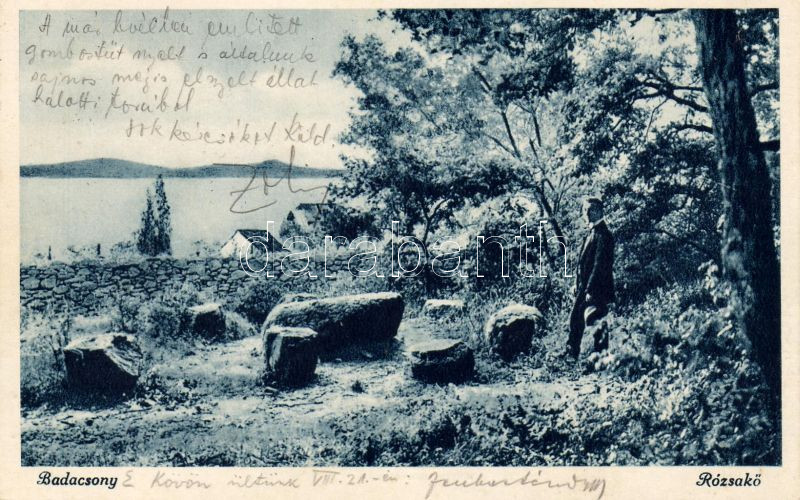 A már levélben említett
gombostűt nyelt s általunk
sajnos mégis elszelt állat
halotti torából
sok kézcsókot küld.
Zoli
darabanth
Badacsony E kövön ültünk VIII. 21.-én: Rózsakő